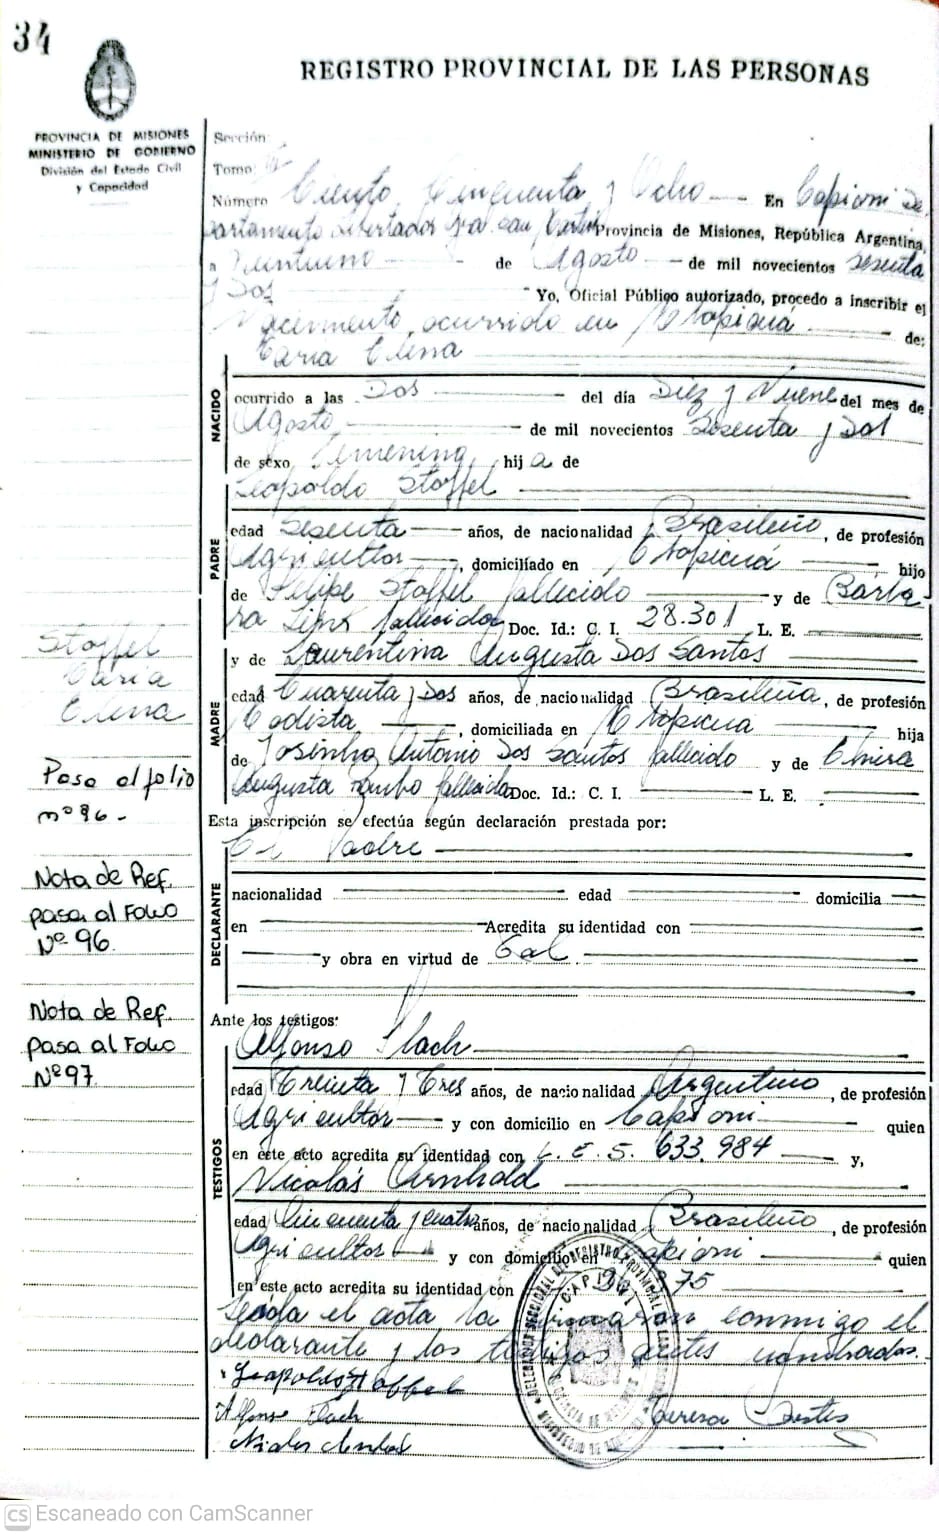 34
REGISTRO PROVINCIAL DE LAS PERSONAS
PROVINCIA DE MISIONES
MINISTERIO DE GOBIERNO
División del Estado Civil
y Capacidad
Sección:
Tomo:
Número Ciento Cincuenta y Ocho En Capioni De
partamento Libertador Gral. San Martín Provincia de Misiones, República Argentina,
a Veintiuno de Agosto de mil novecientos sesenta
y Dos Yo, Oficial Público autorizado, procedo a inscribir el
Nacimiento, ocurrido en de:
María Elena
NACIDO
ocurrido a las Dos del día Diez y Nueve del mes de
Agosto de mil novecientos Sesenta y Dos
de sexo Femenino, hija de
Leopoldo Stoffel
PADRE
edad Sesenta años, de nacionalidad Brasileño, de profesión
Agricultor, domiciliado en hijo
de Felipe Stoffel fallecido y de Bárba-
ra fallecida Doc. Id.: C. I. 28.301 L. E.
y de Laurentina Augusta Dos Santos
MADRE
edad Cuarenta y Dos años, de nacionalidad Brasileña, de profesión
Modista, domiciliada en hija
de Antonio Dos Santos fallecido y de
Augusta fallecida Doc. Id.: C. I. L. E.
Stoffel
María
Elena
Pasa al folio
nº 96-
Nota de Ref.
pasa al Folio
Nº 96.
Nota de Ref.
pasa al Folio
Nº 97
Esta inscripción se efectúa según declaración prestada por:
El Padre
DECLARANTE
nacionalidad edad domicilia
en Acredita su identidad con
y obra en virtud de Tal
Ante los testigos:
Alfonso Flach
TESTIGOS
edad Treinta y Tres años, de nacionalidad Argentino, de profesión
Agricultor y con domicilio en Capioni quien
en este acto acredita su identidad con L. E. 5. 633.984 y,
Nicolás Arnhold
edad Cincuenta y cuatro años, de nacionalidad Brasileño, de profesión
Agricultor y con domicilio en Capioni quien
en este acto acredita su identidad con 375
Leida el acta la firmaron conmigo el
declarante y los testigos antes nombrados.
Leopoldo Stoffel
Alfonso Flach
CS Escaneado con CamScanner